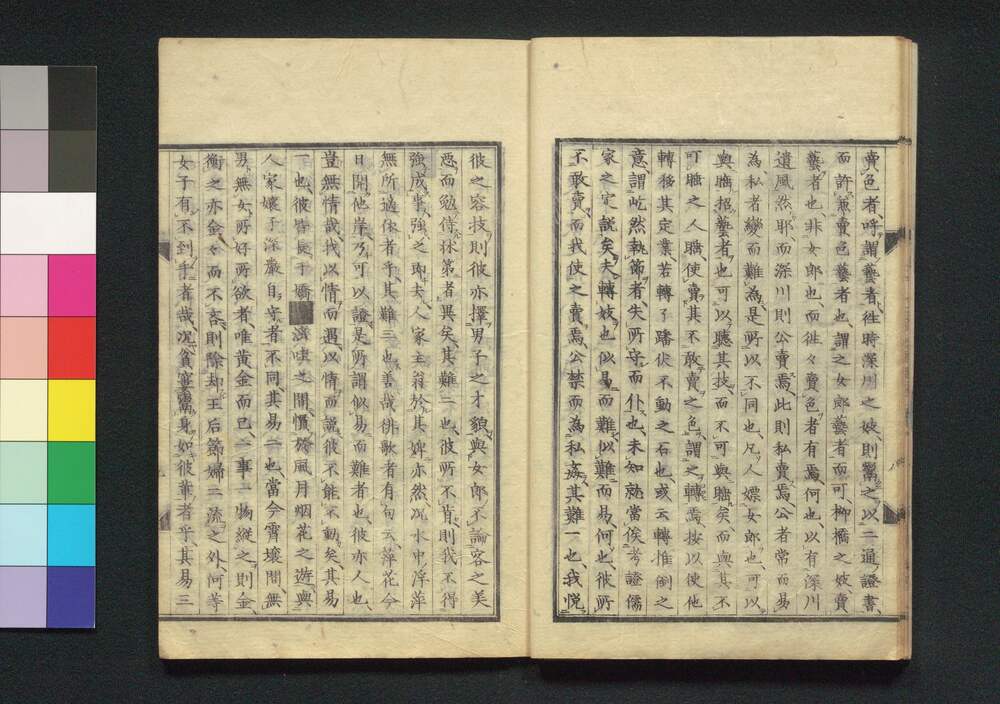 賣色者、呼謂藝者、往時深川之妓、則鬻之以二通證書、
而許兼賣色藝者也、謂之女郎藝者而可、柳橋之妓、賣
藝者也、非女郎也、而往々賣色者有焉何也、以有深川
遺風然耶而深川則公賣焉、此則私賣焉、公者常而易
為、私者變而難為、是所以不同也、凡人嫖女郎也、可以
與睡招藝者也、可以聽其技而不可與睡矣、而與其不
可睡之人睡、使賣其不敢賣之色、謂之轉焉、按以使他
轉移其定業、若轉了蹯伏不動之石也、或云轉惟倒之
意、謂屹然執節者、失所守而仆也、未知孰當俟考證儒
家之定説矣、夫轉妓也似易而難似難而易、何也、彼所
不敢賣、而我使之賣焉、公禁而為私姦其難一也、我悅
彼之容技則彼亦擇男子之才貌與女郎不論容之美
惡、而勉侍牀第者異矣、其難二也、彼所不肯、則我不得
強成事、強之即夫人家主翁於其婢亦然、况水中浮萍
無所適保者乎、其難三也善哉俳歌者有句云、萍花今
日開他岸、乃可以證是所謂似易而難者也、彼亦人也
豈無情哉我以情而遇、以情而説彼不能不動矣、其易
一也、彼皆長于嬌濟嗟之間、慣於風月烟花之遊與
人家孃子深嚴自守者不同、其易二也、當今霄壤間、無
男無女、所好所欲者、唯黃金而已、一事一物縱之、則金、
衡之亦金、々而不吝、則除却王后節婦二流之外、何等
女子有不到手者哉、况貧窶鬻身如彼輩者乎其易三